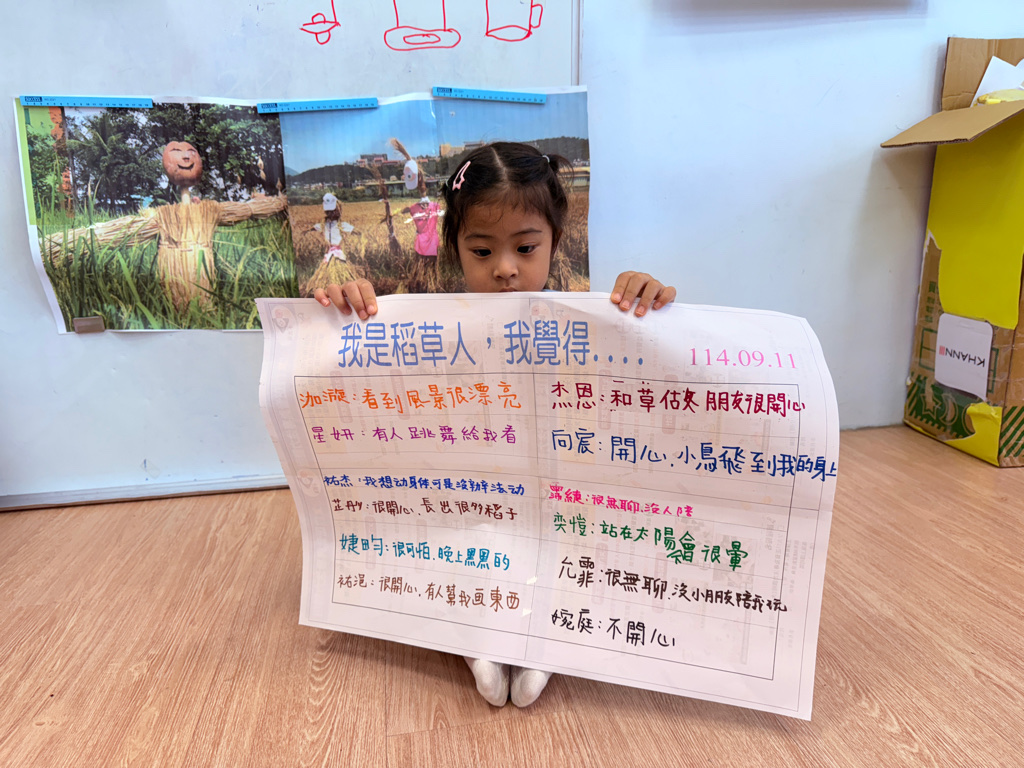 我是稻草人，我覺得....
114.09.11
泇漩：看到風景很漂亮
星妍：有人跳舞給我看
祐杰：我想动身体可是沒辦法动
芷彤：很開心、長出很多稻子
婕畇：很可怕、晚上黑黑的
祐滬：很開心、有人幫我画東西
杰恩：和草估夾朋友很開心
向宸：開心、小鳥飛到我的身上
很無聊、沒人陪
奕愷：站在太陽會很暈
允霏：很無聊、沒小朋友陪我玩
婉庭：不開心
KHANN